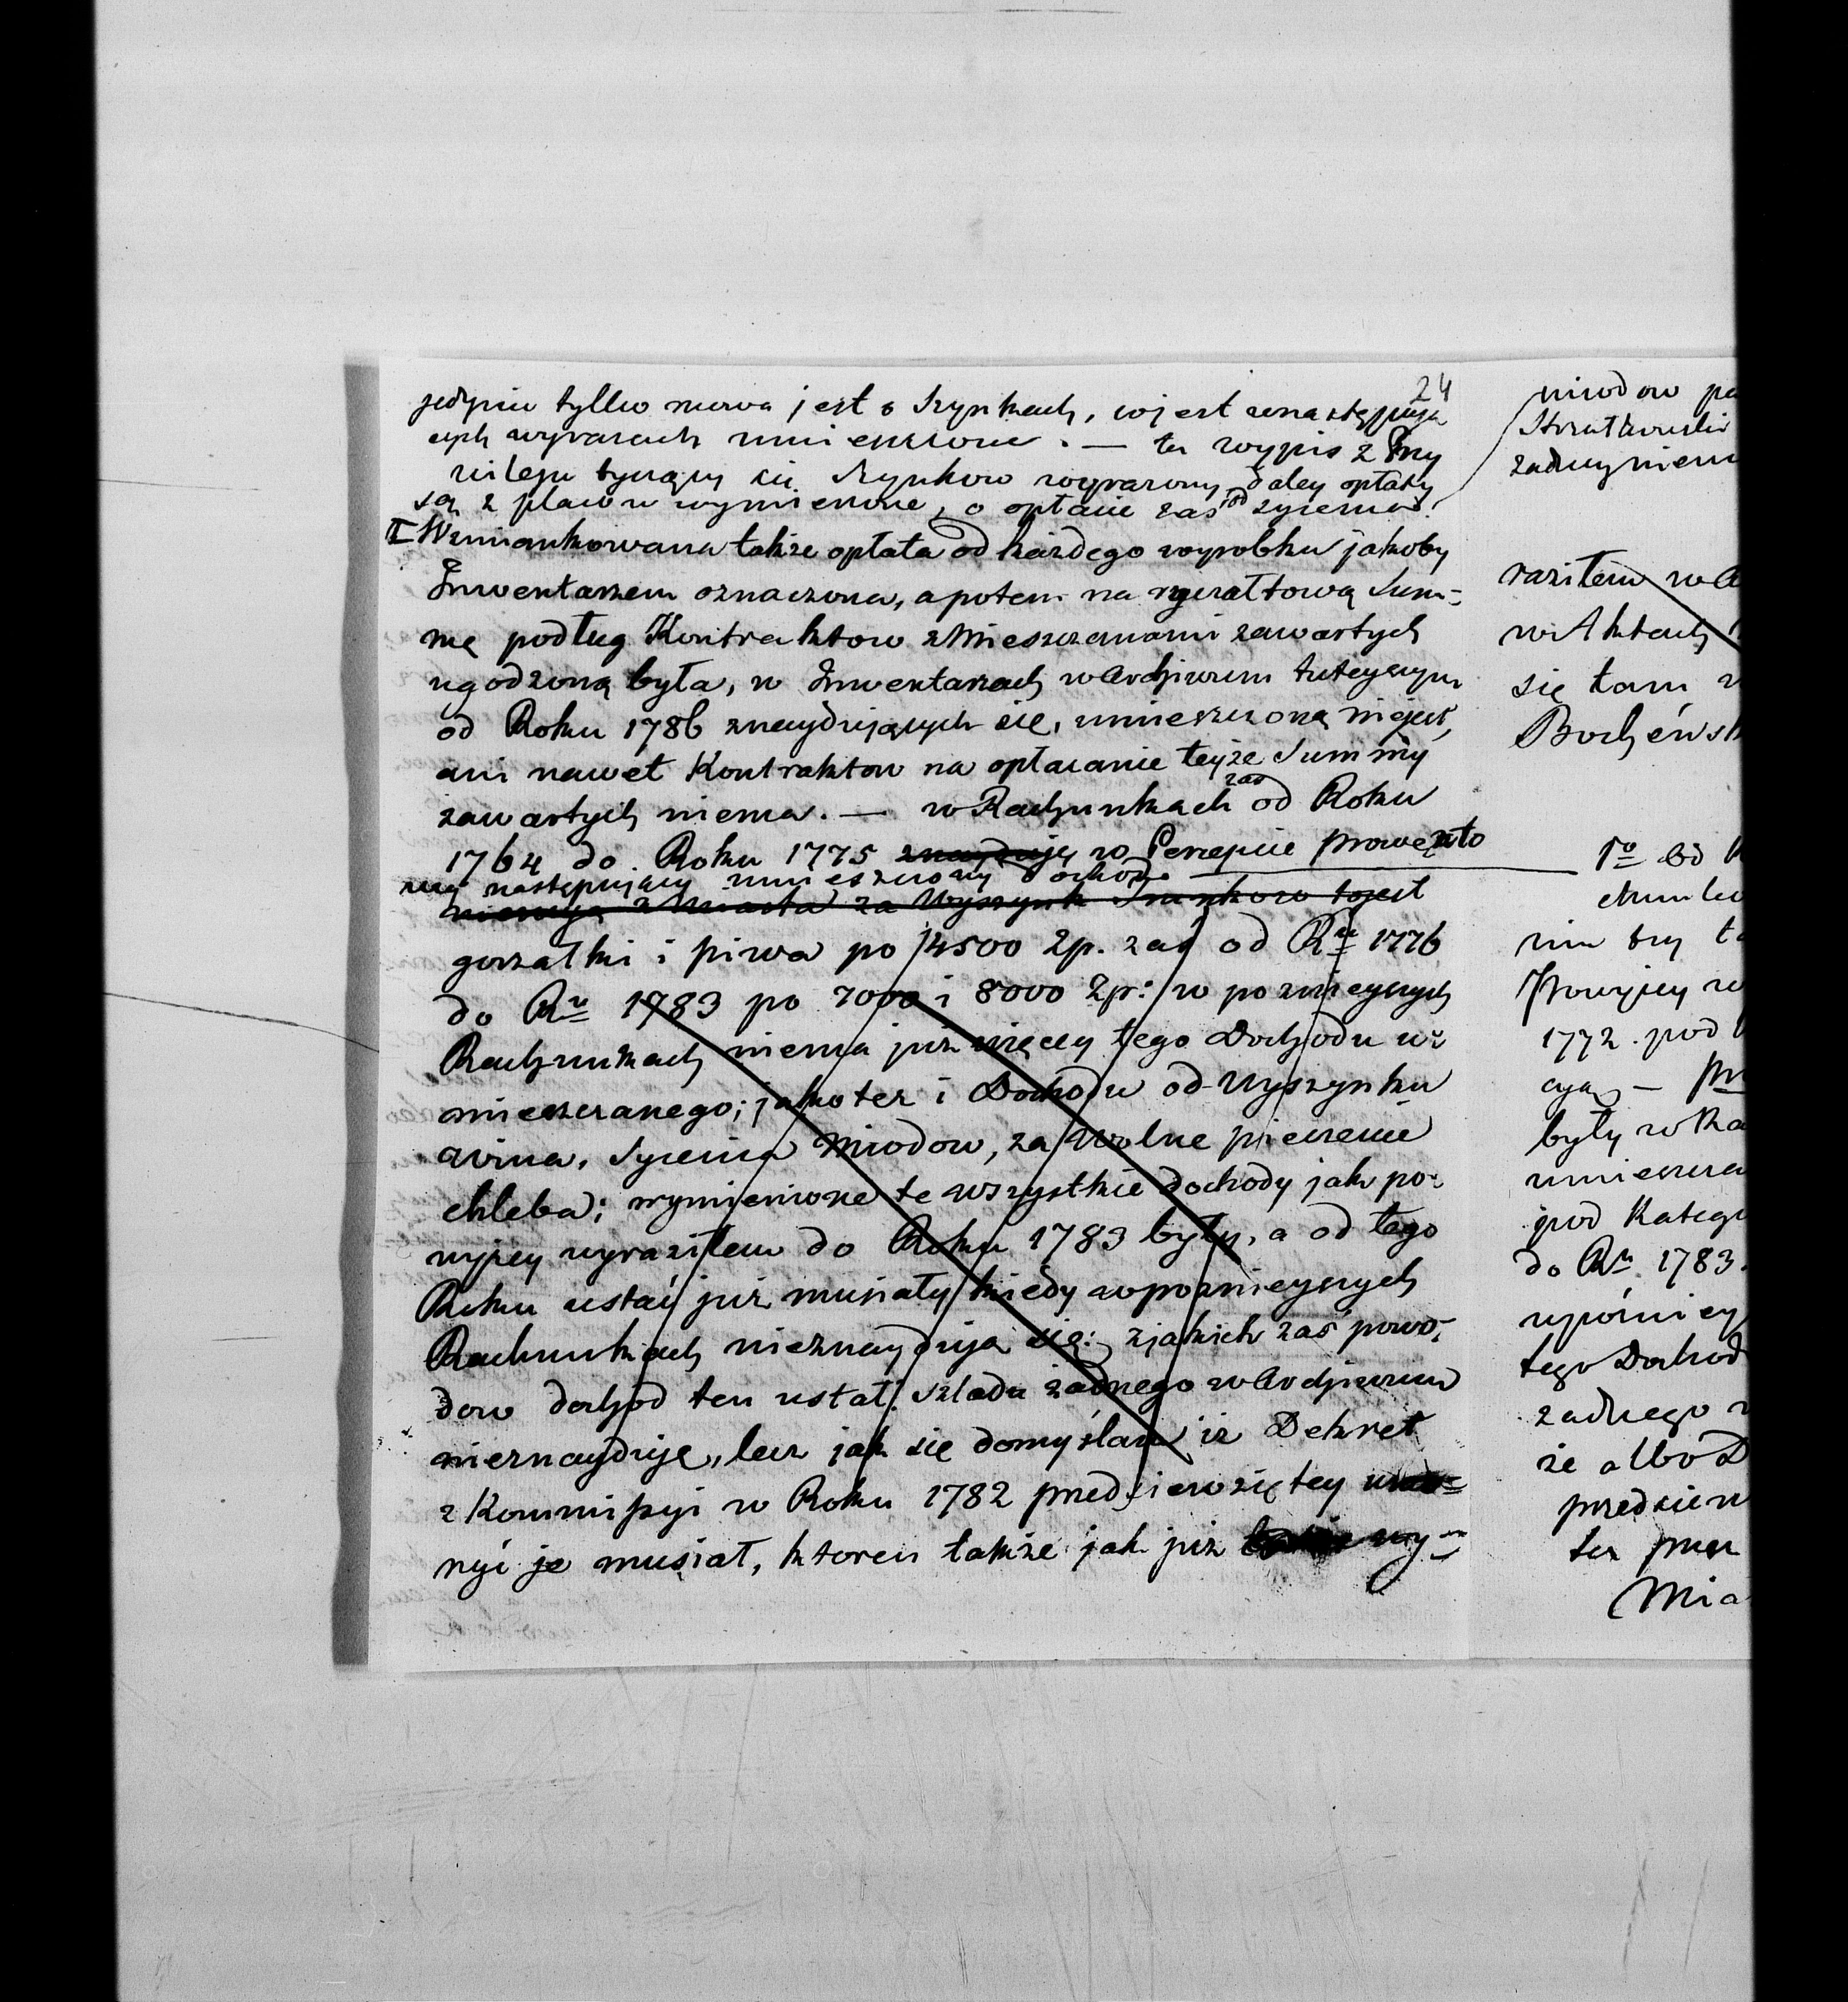 24
jedynie tylko mowa jest o Szynkach, co jest w następują
cych wyrazach umieszczone. — tu wypis z Przy
wileju tyczący się Szynkow wyrazony, daley opłaty
są z placow wymienione, o opłacie zas od sycenia
I Wzmiankowana także opłata od każdego wyrobku jakoby
Inwentarzem oznaczona, a potem na ryczałtową Sum=
mę podług Kontraktow z Mieszczanami zawartych
ugodzoną była, w Inwentarzach w Archiwum tuteyszym
od Roku 1786 znaydujących się, umieszczoną niejest,
ani nawet Kontraktow na opłacanie teyże Summy
zawartych niema. — w Rachunkach zas od Roku
1764 do Roku 1775 znayduję w Percepcie prowento
wey następujący umieszczony dochod
z Miasta za Wyszynk Trunkow to jest
gorzałki i piwa po 14500 Zp. zaś od Ru 1776
do Ru 1783 po 7000 i 8000 Zp: w pozniejszych
Rachunkach niema już więcey tego Dochodu u=
mieszczanego; jako tez i Dochodu od Wyszynku
wina, Sycenia Miodow, za Wolne pieczenie
chleba; wymienione te wszystkie dochody jak po=
wyżey wyraziłem do Roku 1783 były, a od tego
Roku ustać już musiały kiedy w poznieyszych
Rachunkach nieznayduja się: z jakich zaś powo=
dow dochod ten ustał szladu żadnego w Archiwum
nieznayduję, lecz jak się domyślam iż Dekret
z Kommissyi w Roku 1782 przedsiewziętey
nyć je musiał, ktoren także jak już wy=
miodow
Strutkowski
zaduzy
raziłem w
w Aktach
się tam
Bocheńsk
1o od
nim try
Powyżey w
1772. pod
cyą —
były w Ka
umieszcza
pod Katego
do Ru 1783.
tego Dochod
żadnego
że albo D
przedsiew
tez
Mia